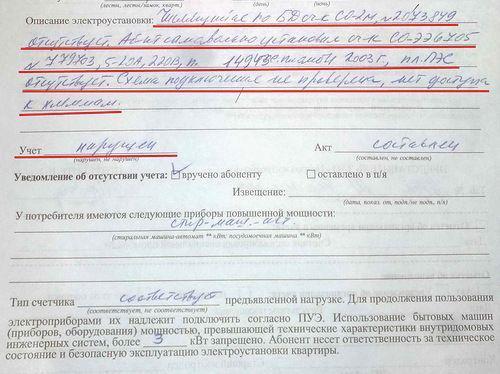 (лесты, лести./марш. кварт.) (день) (ночь)
Описание электроустановки: по БД сч-к СО-2М, №2073849
отсутствует. Аб-т самовольно установил сч-к СО-ЭЭ6705
№779703, 5-20А, 220В, п. 14943 2003г, пл. ГЭК
отсутствует. Схема подключения не проверена, нет доступа
к клеммам.
Учет нарушен Акт составлен
(нарушен, не нарушен) (составлен, не составлен)
Уведомление об отсутствии учета: вручено абоненту оставлено в п/я
Извещение:
(дата, показ. от. подп./не подп., п/я)
У потребителя имеются следующие приборы повышенной мощности:
стир-маш.-авт.
(стиральная машина-автомат ** кВт; посудомоечная машина ** кВт)
Тип счетчика соответствует предъявленной нагрузке. Для продолжения пользования
(соответствует, не соответствует)
электроприборами их надлежит подключить согласно ПУЭ. Использование бытовых машин
(приборов, оборудования) мощностью, превышающей технические характеристики внутридомовых
инженерных систем, более 3 кВт запрещено. Абонент несет ответственность за техническое
состояние и безопасную эксплуатацию электроустановки квартиры.